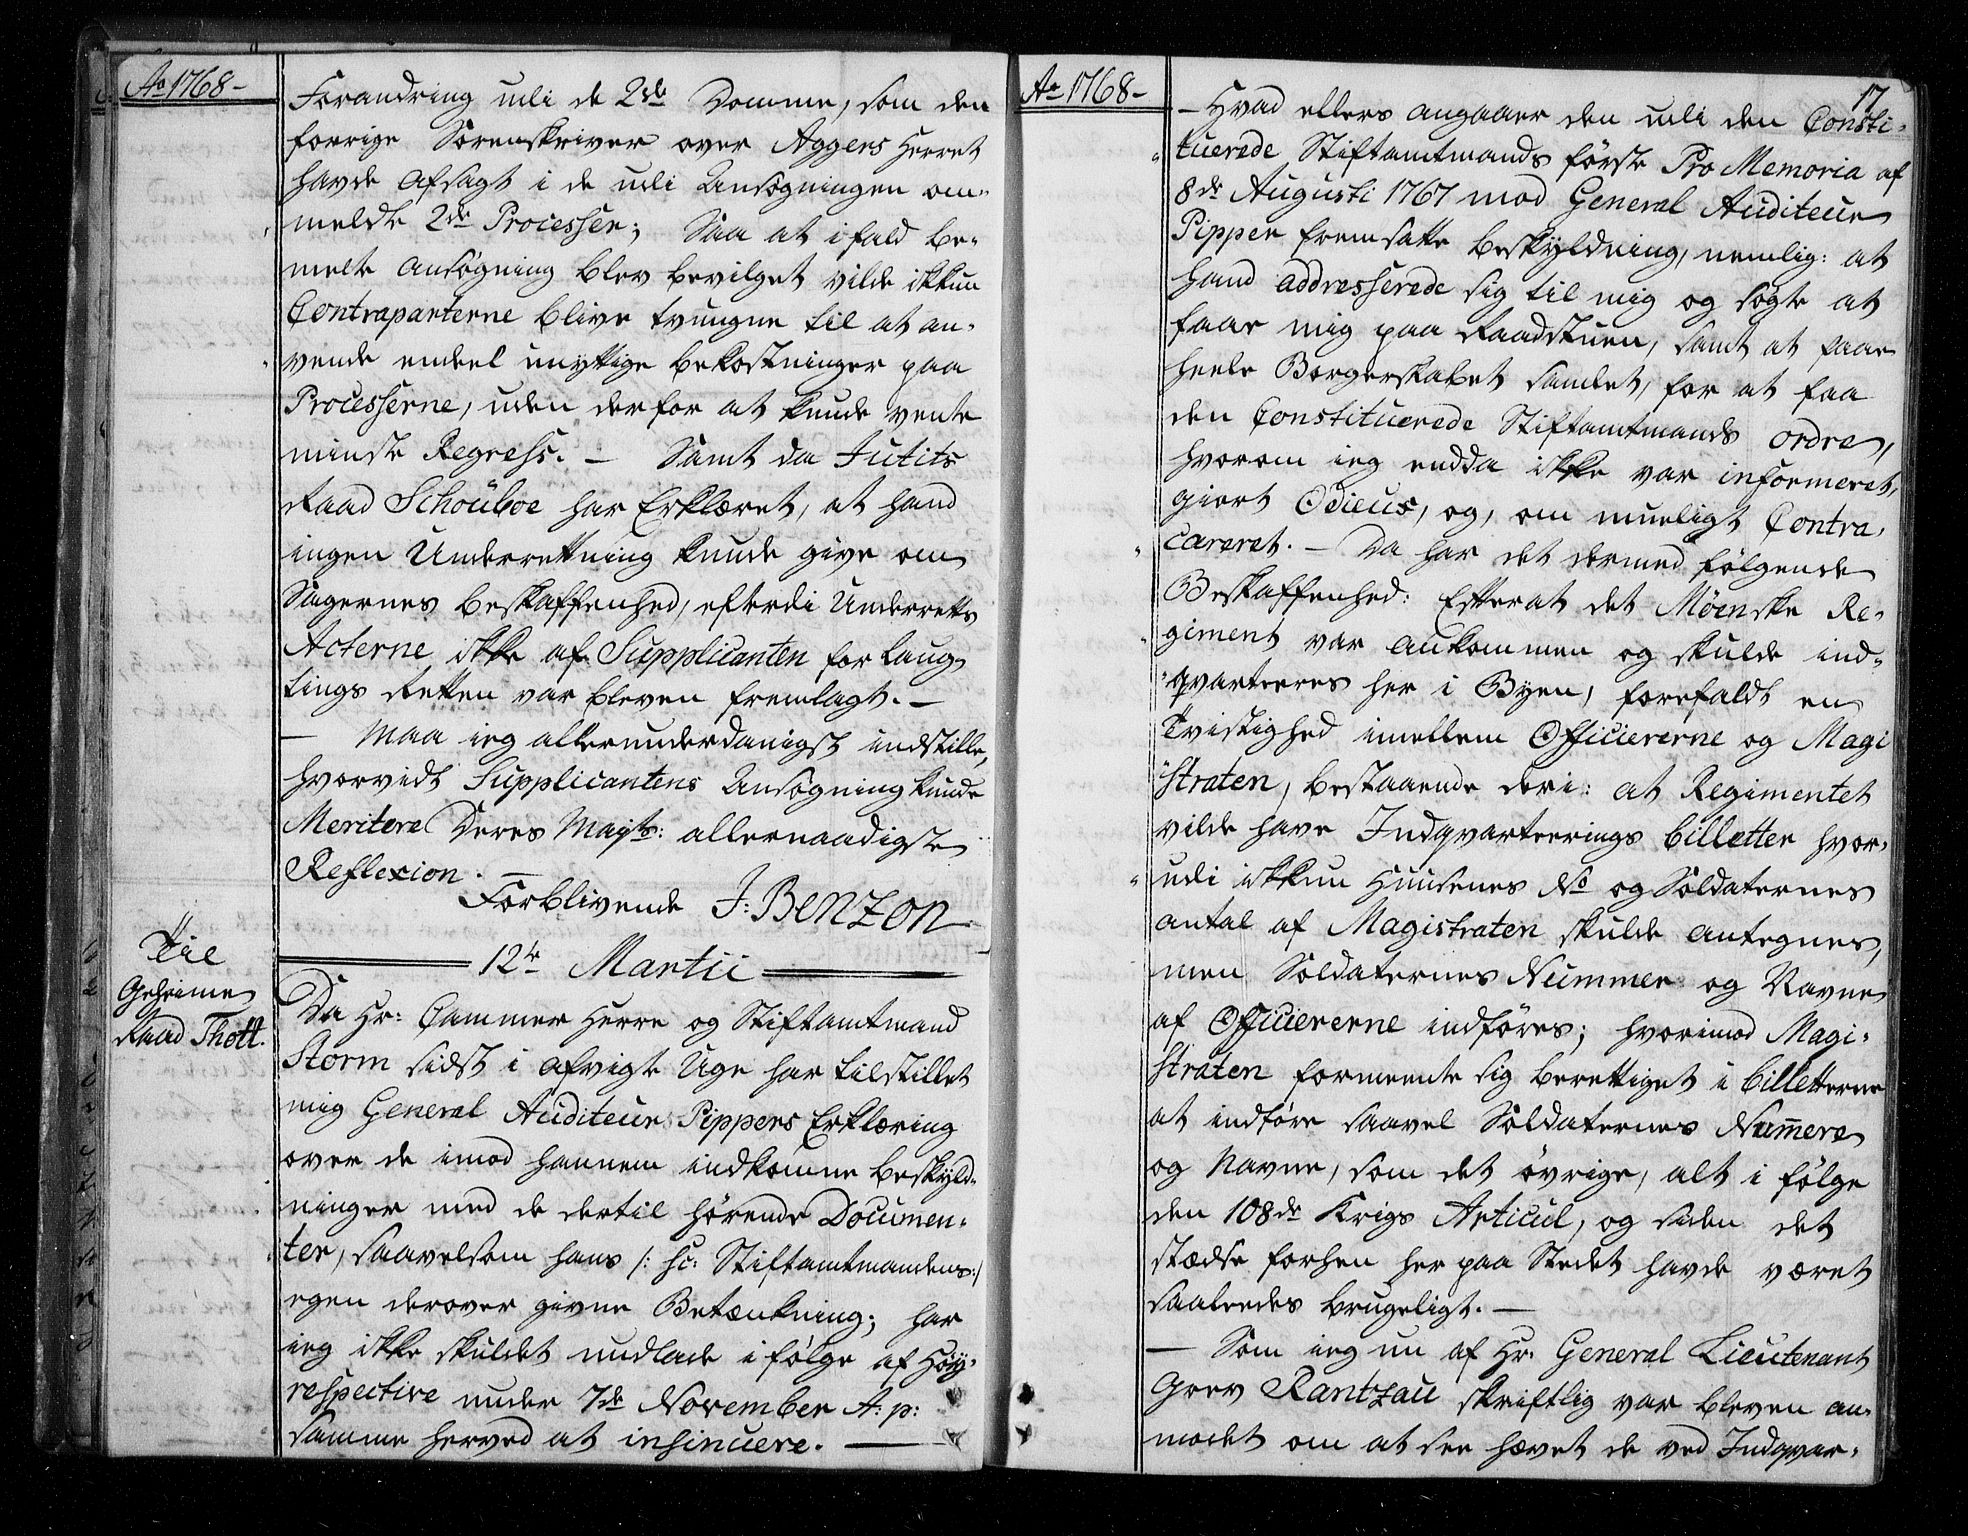 Ao 1768 –
Forandring udi de 2de Domme, som den
forrige Sorenskriver over Aggers Herret
havde afsagt i de udi Ansøgningen om-
meldte 2de Processer; Saa at ifald be-
melte Ansøgning blev bevilget vilde ikkun
Contraparterne blive tvungne til at an-
vende endeel unyttige bekostninger paa
Processerne, uden derfor at kunde vente
mindste Regress. – Samt da Jutits
Raad Schouboe har Erklæret, at hand
ingen Underrettning kunde give om
Sagernes beskaffenhed, efterdi Underretts
Acterne ikke af Supplicanten for Laug-
tings Retten var bleven fremlagt. –
– Maa ieg allerunderdanigst indstille,
hvorvidt Supplicantens Ansøgning kunde
Meritere Deres Mayts: allernaadigste
Reflexion. –
Forblivende J: Benzon
12te Martii
Til
Geheime
Raad Thott.
Da Hr: Cammer Herre og Stiftamtmand
Storm sidst i afvigte Uge har tilstillet
mig General Auditeur Pippers Erklæring
over de imod hannem indkomne beskyld-
ninger med de dertil hørende Documen-
ter, saavelsom hans /: hc: Stiftamtmandens:/
egen derover givne Betænkning; har
ieg ikke skuldet undlade i følge af Høy-
respective under 7de November A: p:
samme herved at insinuere. –
Ao 1768 –
17
– Hvad ellers angaaer den udi den Consti-
tuerede Stiftamtmands første Pro Memoria af
8de Augusti 1767 mod General Auditeur
Pipper fremsatte beskyldning, nemlig: at
hand addresserede sig til mig og søgte at
faae mig paa Raadstuen, samt at faae
heele Borgerskabet samlet, for at faa
den Constituerede Stiftamtmands ordre,
hvorom ieg endda ikke var informeret,
giort Odieus, og, om mueligt Contra-
careret. – Da har det dermed følgende
Beskaffenhed: Efterat det Møenske Re-
giment var ankommen og skulde ind-
qvarteeres her i Byen, forefaldt en
Tvistighed imellem Officiererne og Magi
straten, bestaaende deri: at Regimentet
vilde have Indqvarteerings billetter hvor-
udi ikkun Huusenes No og Soldaternes
antal af Magistraten skulde antegnes,
men Soldaternes Nummer og Navne
af Officiererne indføres; hvorimod Magi-
straten formeente sig berettiget i billetterne
at indføre saavel Soldaternes Num̄ere
og Navne, som det øvrige, alt i følge
den 108de Krigs Articul, og siden det
stædse forhen her paa Stedet havde været
saaledes brugeligt. –
– Som ieg nu af Hr: General Lieutenant
Grev Rantzau skriftlig var bleven an-
modet om at see hævet de ved Indqvar-